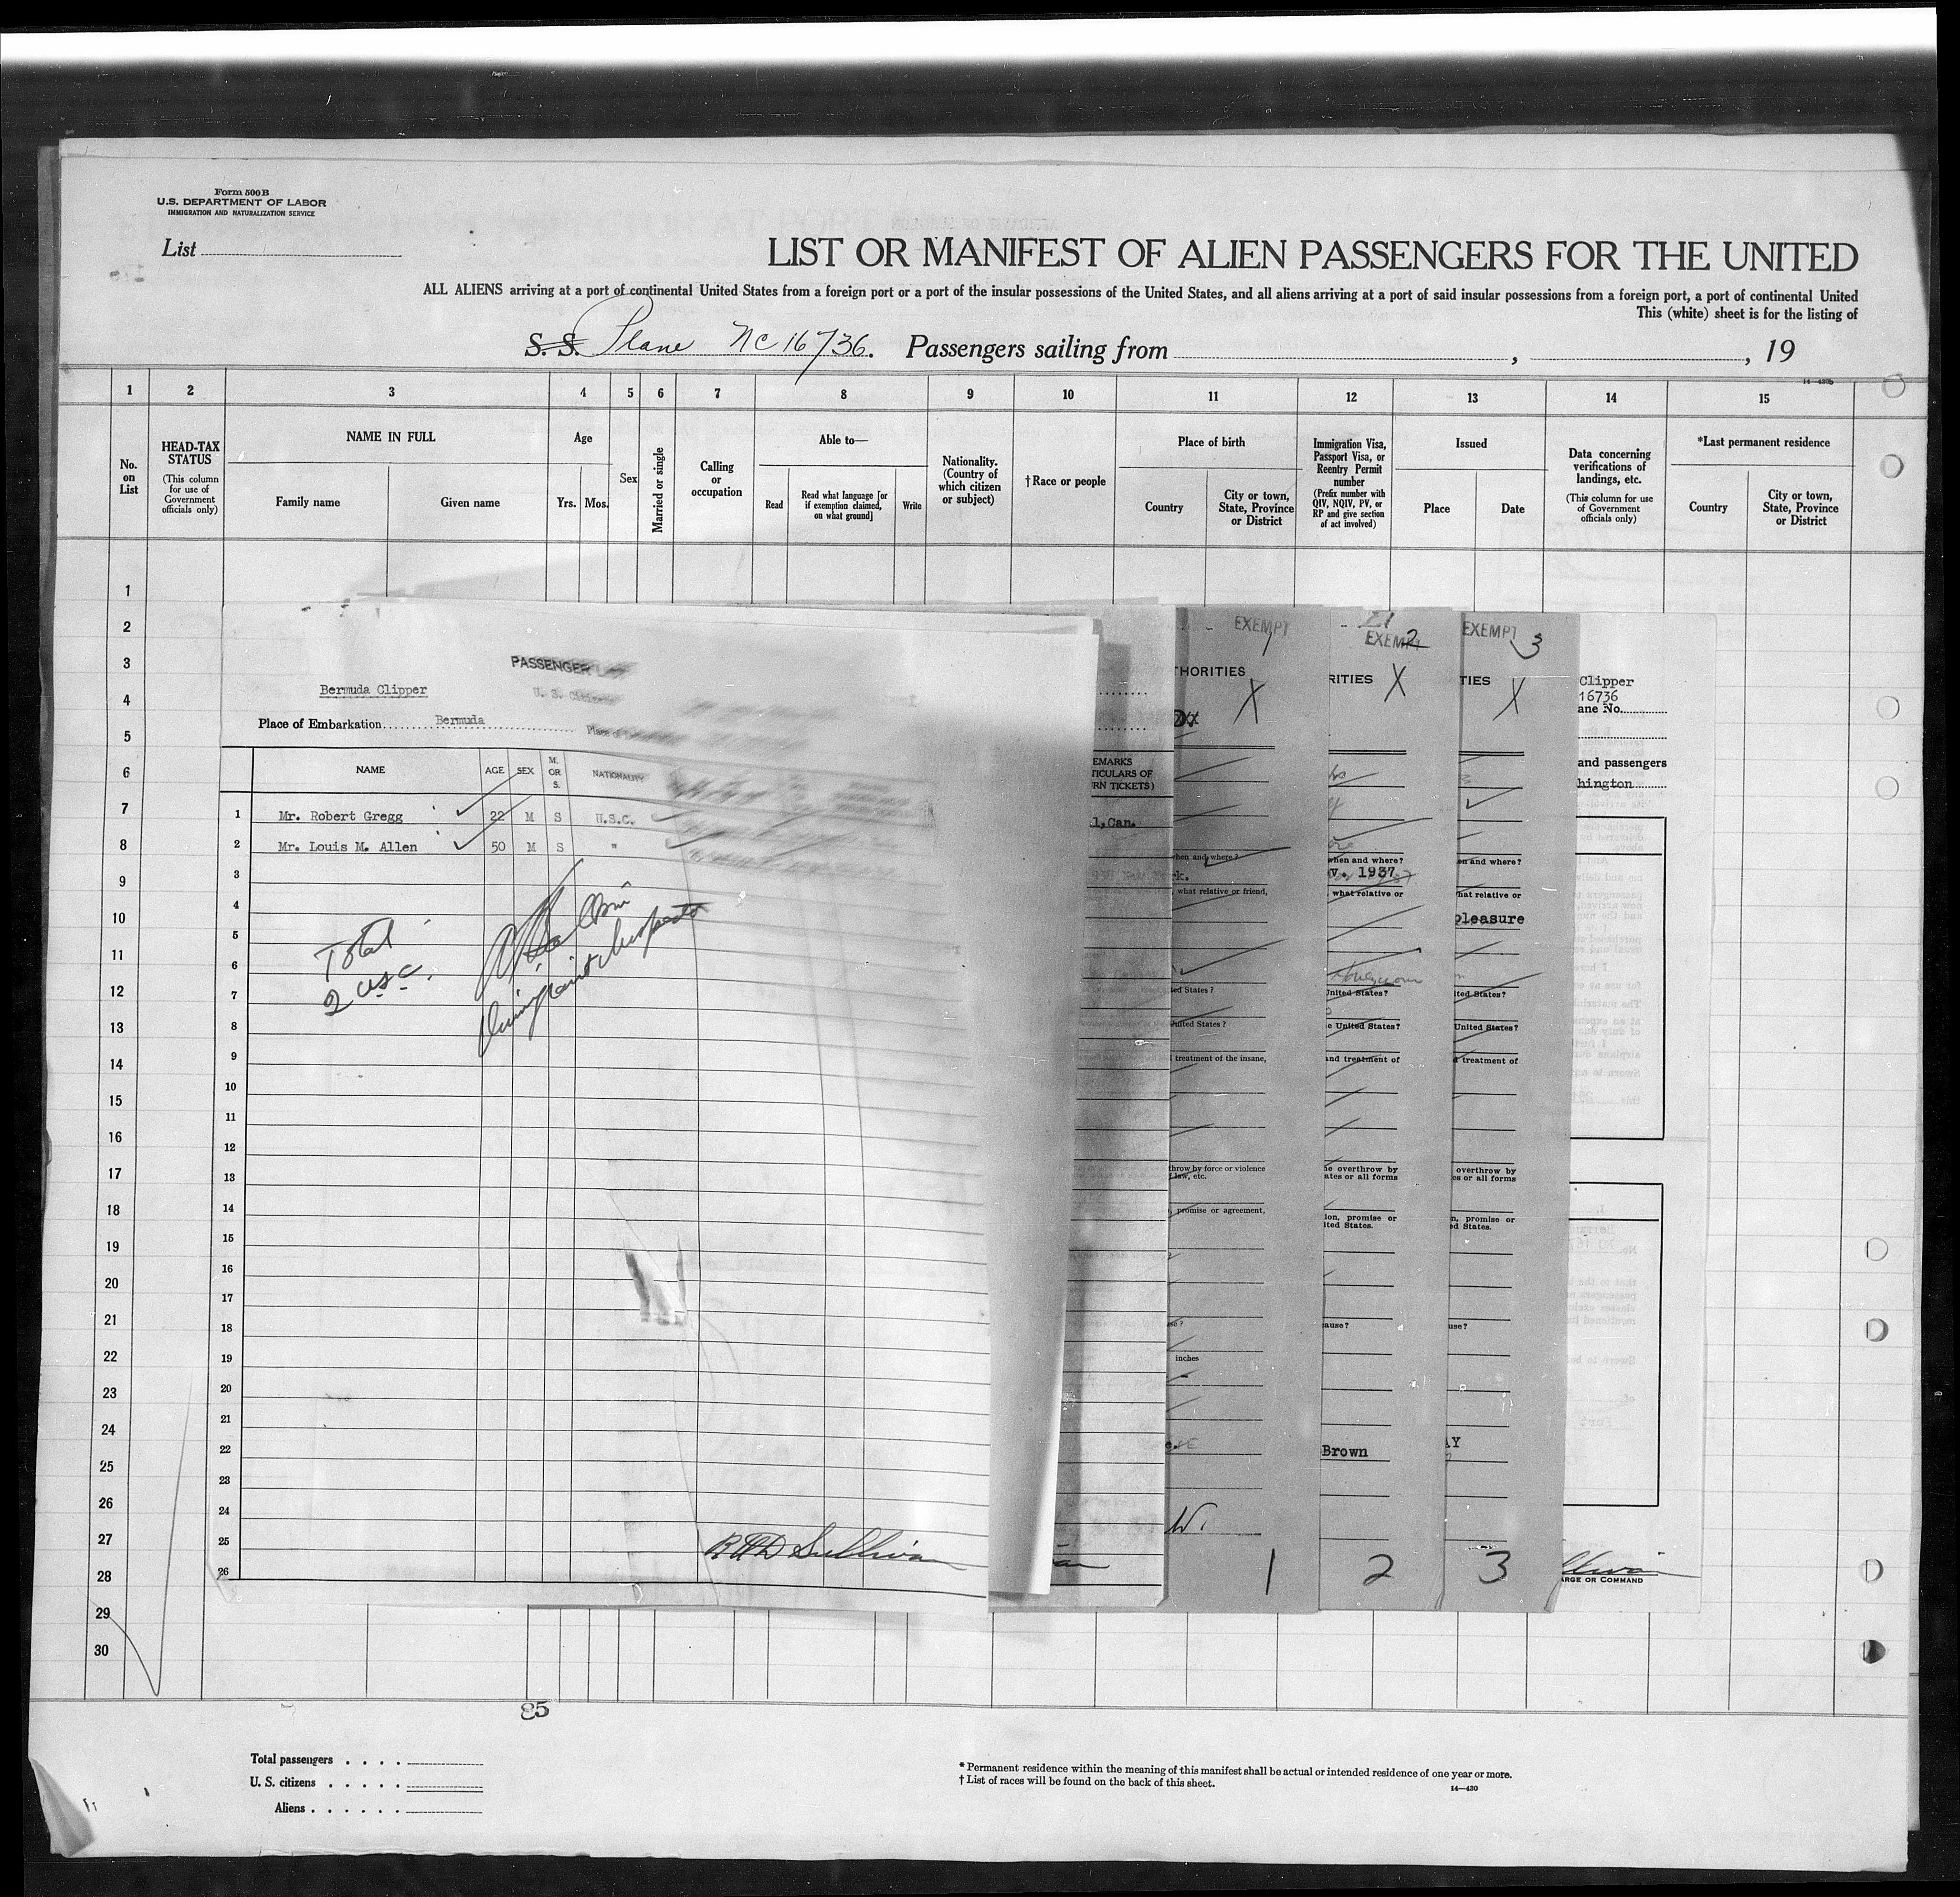 Form 500B
U.S. DEPARTMENT OF LABOR
IMMIGRATION AND NATURALIZATION SERVICE
List
LIST OR MANIFEST OF ALIEN PASSENGERS FOR THE UNITED
ALL ALIENS arriving at a port of continental United States from a foreign port or a port of the insular possessions of the United States, and all aliens arriving at a port of said insular possessions from a foreign port, a port of continental United
This (white) sheet is for the listing of
S. S. Plane NC 16736. Passengers sailing from , , 19
1 2 3 4 5 6 7 8 9 10 11 12 13 14 15
No. on List
HEAD-TAX STATUS
(This column for use of Government officials only)
NAME IN FULL
Family name
Given name
Age
Yrs.
Mos.
Sex
Married or single
Calling or occupation
Able to—
Read
Read what language [or if exemption claimed, on what ground]
Write
Nationality. (Country of which citizen or subject)
†Race or people
Place of birth
Country
City or town, State, Province or District
Immigration Visa, Passport Visa, or Reentry Permit number
(Prefix number with QIV, NQIV, PV, or RP and give section of act involved)
Issued
Place
Date
Data concerning verifications of landings, etc.
(This column for use of Government officials only)
*Last permanent residence
Country
City or town, State, Province or District
1
2
3
4
5
6
7
8
9
10
11
12
13
14
15
16
17
18
19
20
21
22
23
24
25
26
27
28
29
30
PASSENGER
U. S. Citizens
Bermuda Clipper
Place of Embarkation Bermuda
NAME AGE SEX M. OR S. NATIONALITY
1 Mr. Robert Gregg 22 M S U.S.C.
2 Mr. Louis M. Allen 50 M S "
3
4
5
6
7
8
9
10
11
12
13
14
15
16
17
18
19
20
21
22
23
24
25
26
Total
2 USC.
Sullivan
EMARKS
TICULARS OF
RN TICKETS)
l, Can.
EXEMPT 1
THORITIES
X
when and where?
rk.
, what relative or friend,
ted States?
United States?
treatment of the insane,
throw by force or violence
law, etc.
, promise or agreement,
inches
W.
1
EXEMPT 2
RITIES
X
when and where?
v. 1937
what relative or
Honeymoon
United States?
e United States?
and treatment of
he overthrow by
ates or all forms
ion, promise or
ited States.
ause?
Brown
2
EXEMPT 3
TIES
X
en and where?
hat relative or
pleasure
ited States?
United States?
treatment of
overthrow by
es or all forms
n, promise or
ed States.
use?
AY
3
Clipper
16736
ane No.
and passengers
hington
ARGE OR COMMAND
85
Total passengers
U. S. citizens
Aliens
* Permanent residence within the meaning of this manifest shall be actual or intended residence of one year or more.
† List of races will be found on the back of this sheet.
14—430